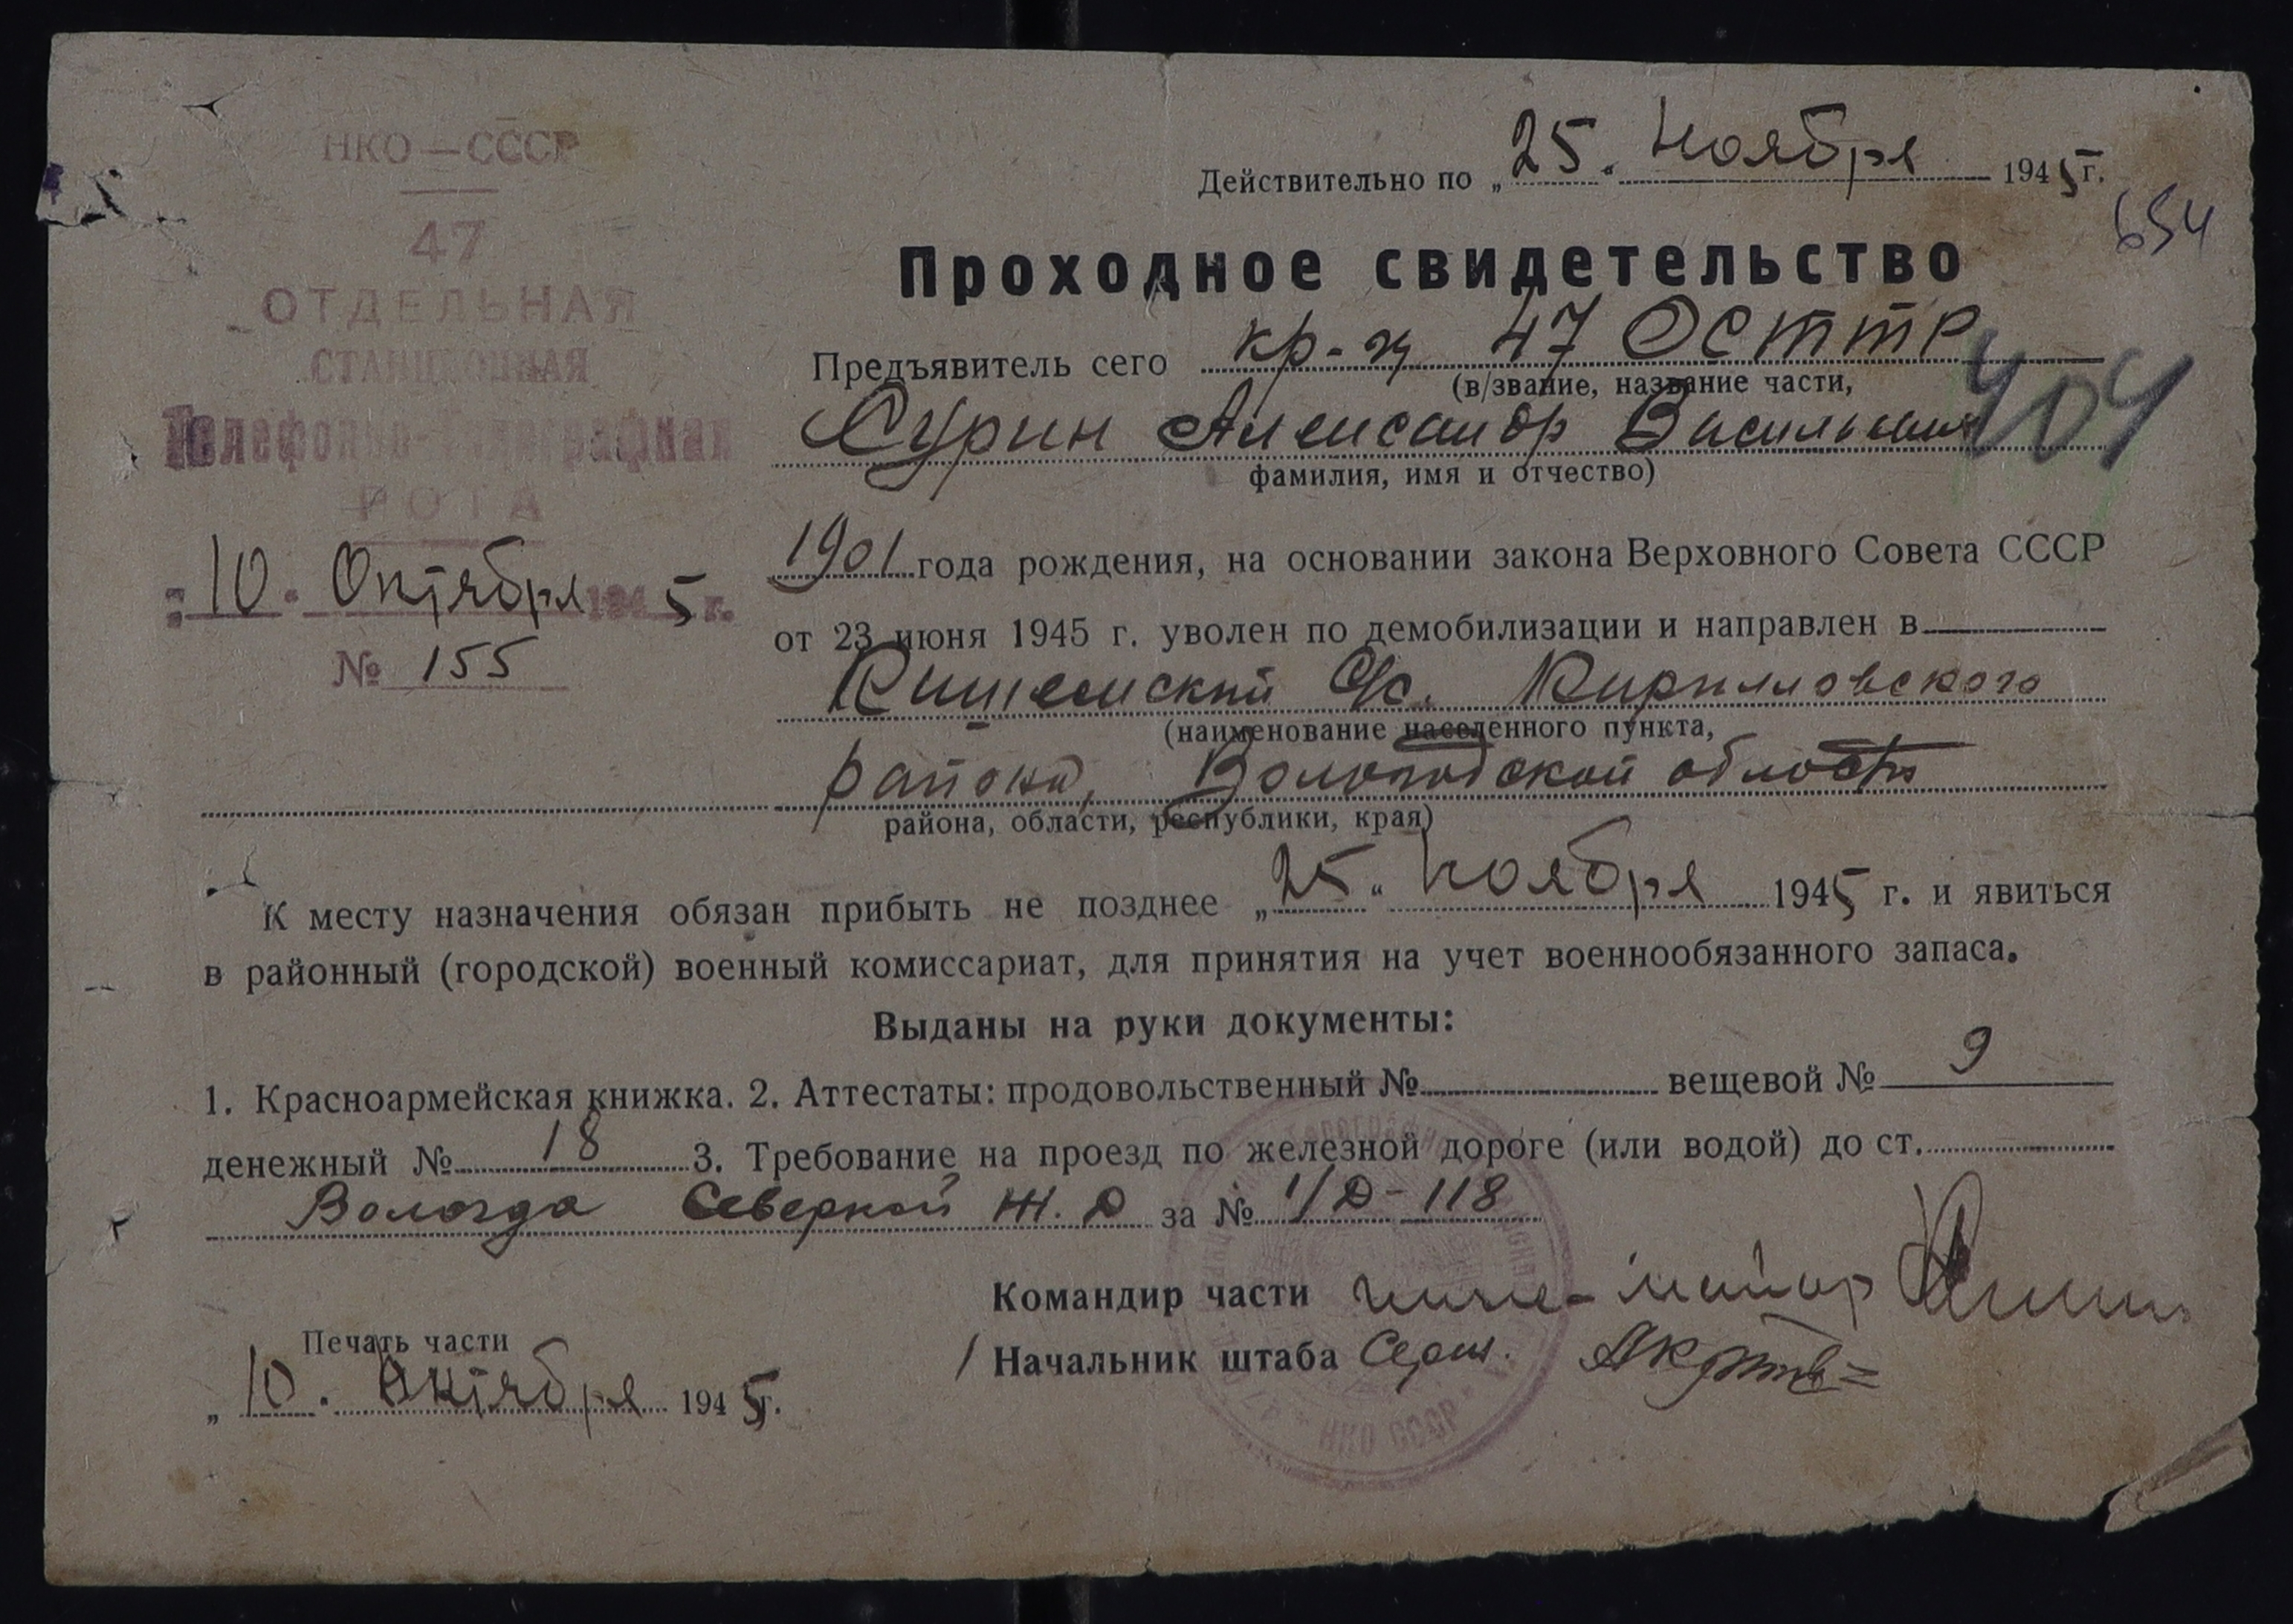 НКО — СССР
47
ОТДЕЛЬНАЯ
СТАНЦИОННАЯ
Телефонно-телеграфная
РОТА
„10“ Октября 1945 г.
№ 155
Действительно по „25“ Ноября 1945 г.
654
Проходное свидетельство
Предъявитель сего кр-ц 47 ОСТТР
(в/звание, название части,
404
Сурин Александр Васильевич
фамилия, имя и отчество)
1901 года рождения, на основании закона Верховного Совета СССР
от 23 июня 1945 г. уволен по демобилизации и направлен в
С/с. Кирилловского
(наименование населенного пункта,
района, Вологодской области
района, области, республики, края)
К месту назначения обязан прибыть не позднее „25“ Ноября 1945 г. и явиться
в районный (городской) военный комиссариат, для принятия на учет военнообязанного запаса.
Выданы на руки документы:
1. Красноармейская книжка. 2. Аттестаты: продовольственный № вещевой № 9
денежный № 18 3. Требование на проезд по железной дороге (или водой) до ст.
Вологда Северной Ж.Д за № 1/Д-118
Командир части майор
/ Начальник штаба
Печать части
„10“ Октября 1945 г.
НКО СССР